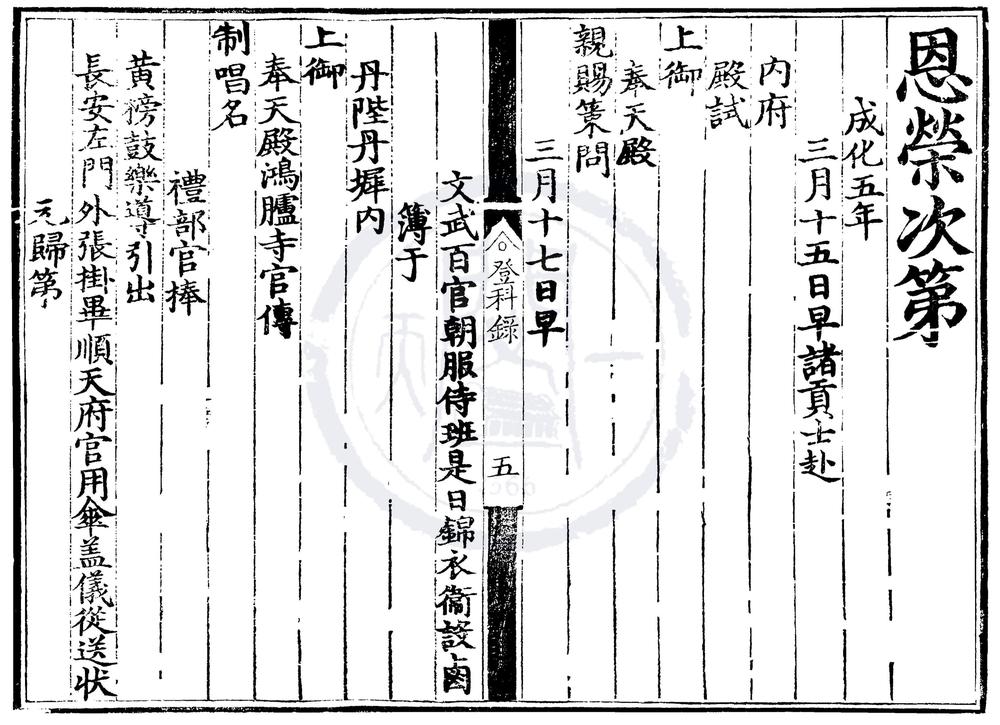 恩榮次第
成化五年
三月十五日早諸貢士赴
内府
殿試
上御
奉天殿
親賜策問
三月十七日早
登科錄
五
文武百官朝服侍班是日錦衣衞設鹵
簿于
丹陛丹墀内
上御
奉天殿鴻臚寺官傳
制唱名
禮部官捧
黃榜鼓樂導引出
長安左門外張掛畢順天府官用傘盖儀從送状
元歸第